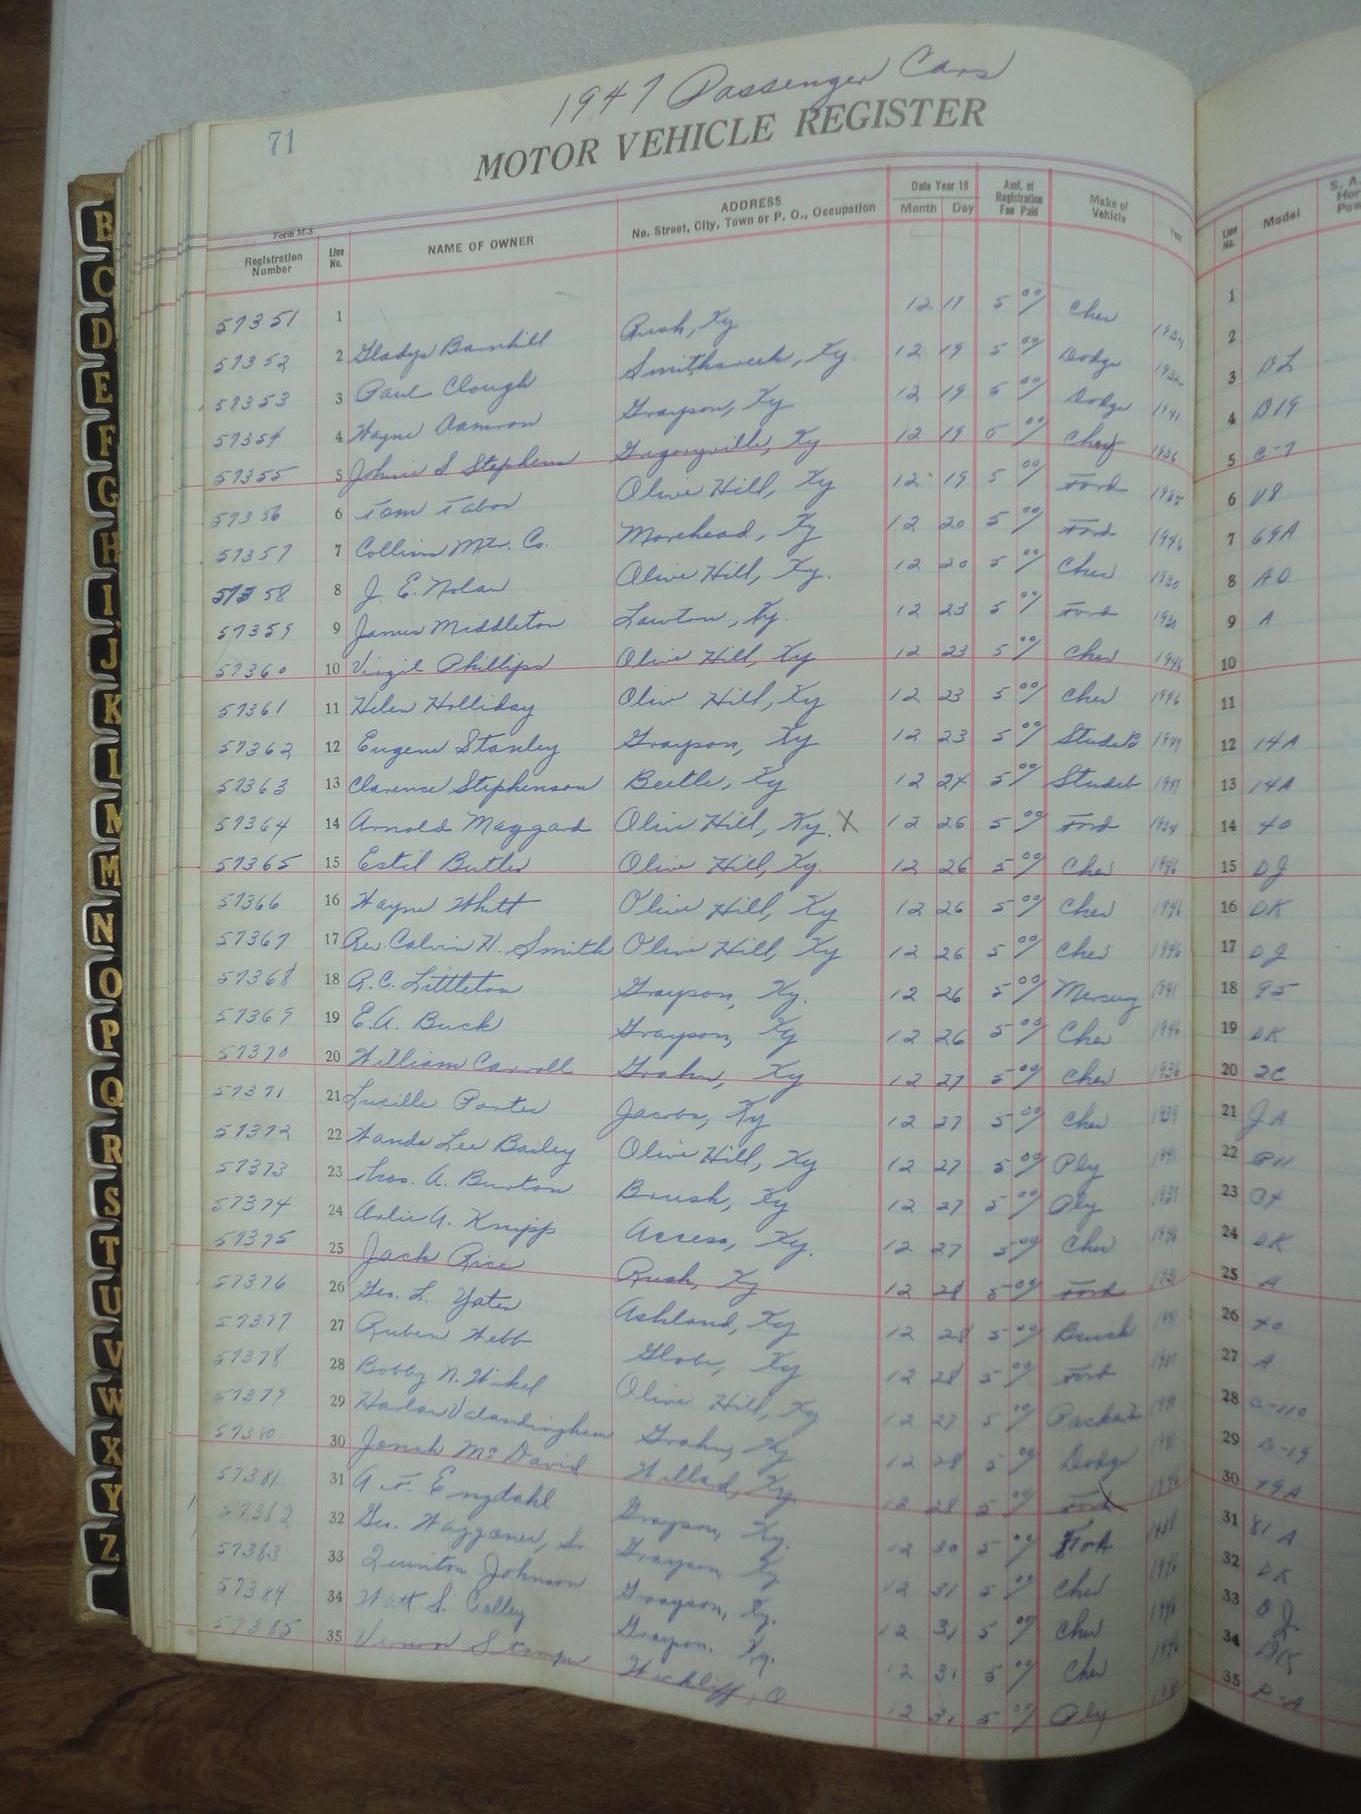 1947 Passenger Cars
71
MOTOR VEHICLE REGISTER
Form M-3
Registration Number Line No. NAME OF OWNER ADDRESS No. Street, City, Town or P. O., Occupation Date Year 19 Month Day Amt. of Registration Fee Paid Make of Vehicle Year Line No. Model S. A.
57351 1 Gladys Barnhill Rush, Ky 12 17 5 00 Chev 1
57352 2 Paul Clough Smithscreek, Ky. 12 19 5 00 Dodge 2 DL
57353 3 Wayne Grayson, Ky 12 19 5 00 Dodge 1941 3 D19
57354 4 Johnie S Stephens Gregoryville, Ky 12 19 5 00 1936 4 C-7
57355 5 Tom Tabor Olive Hill, Ky 12 19 5 00 Ford 5 V8
57356 6 Collins Mtr. Co. Morehead, Ky 12 20 5 00 Ford 1946 6 69A
57357 7 J. E. Nolan Olive Hill, Ky. 12 20 5 00 Chev 1930 7 AD
57358 8 James Middleton Lawton, Ky. 12 23 5 00 Ford 1930 8 A
57359 9 Virgil Phillips Olive Hill, Ky 12 23 5 00 Chev 1946 9
57360 10 Helen Holliday Oliv Hill, Ky 12 23 5 00 Chev 1946 10
57361 11 Eugene Stanley Grayson, Ky 12 23 5 00 StudeB 11 14A
57362 12 Clarence Stephenson Beetle, Ky 12 24 5 00 Studeb 12 14A
57363 13 Arnold Maggard Olive Hill, Ky. X 12 26 5 00 Ford 13 40
57364 14 Estil Butler Olive Hill, Ky. 12 26 5 00 Chev 1946 14 DJ
57365 15 Wayne Whitt Olive Hill, Ky 12 26 5 00 Chev 1946 15 DK
57366 16 Rev Calvin H. Smith Olive Hill, Ky 12 26 5 00 Chev 1946 16 DJ
57367 17 R.C. Littleton Grayson, Ky. 12 26 5 00 Mercury 1941 17 95
57368 18 E.A. Buck Grayson, Ky 12 26 5 00 Chev 1946 18 DK
57369 19 William Carroll Grahn, Ky 12 27 5 00 Chev 1936 19 2C
57370 20 Lucille Porter Jacobs, Ky 12 27 5 00 Chev 1939 20 JA
57371 21 Wanda Lee Bailey Olive Hill, Ky 12 27 5 00 Ply 1941 21 P11
57372 22 Thos. A. Burton Brush, Ky 12 27 5 00 Ply 22
57373 23 Arlie A. Knipp Access, Ky. 12 27 5 00 Chev 1946 23 DK
57374 24 Jack Rice Rush, Ky 12 28 5 00 Ford 1931 24 A
57375 25 Geo. L. Yates Ashland, Ky 12 28 5 00 Buick 25 40
57376 26 Ruben Webb Globe, Ky 12 28 5 00 Ford 26 A
57377 27 Bobby N. Olive Hill, Ky 12 27 5 00 Packard 27
57378 28 Harlan Valandingham Grahn, Ky 12 28 5 00 Dodge 28 D-19
57379 29 Jonah McDavid Willard, Ky 12 28 5 00 Ford 1946 29 79A
57380 30 A. F. Engdahl Grayson, Ky. 12 30 5 00 Ford 1938 30 81A
57381 31 Geo. Waggoner, Sr. Grayson Ky 12 31 5 00 Chev 1946 31 DK
57382 32 Quinton Johnson Grayson, Ky. 12 31 5 00 Chev 32 DJ
57383 33 Watt S. Colley Grayson. Ky. 12 31 5 00 Chev 1946 33 DK
57384 34 Vernon Stamper Wickliff, O 12 31 5 00 Ply 34
57385 35 35
B
C
D
E
F
G
H
I
J
K
L
M
M
N
O
P
Q
R
S
T
U
V
W
X
Y
Z